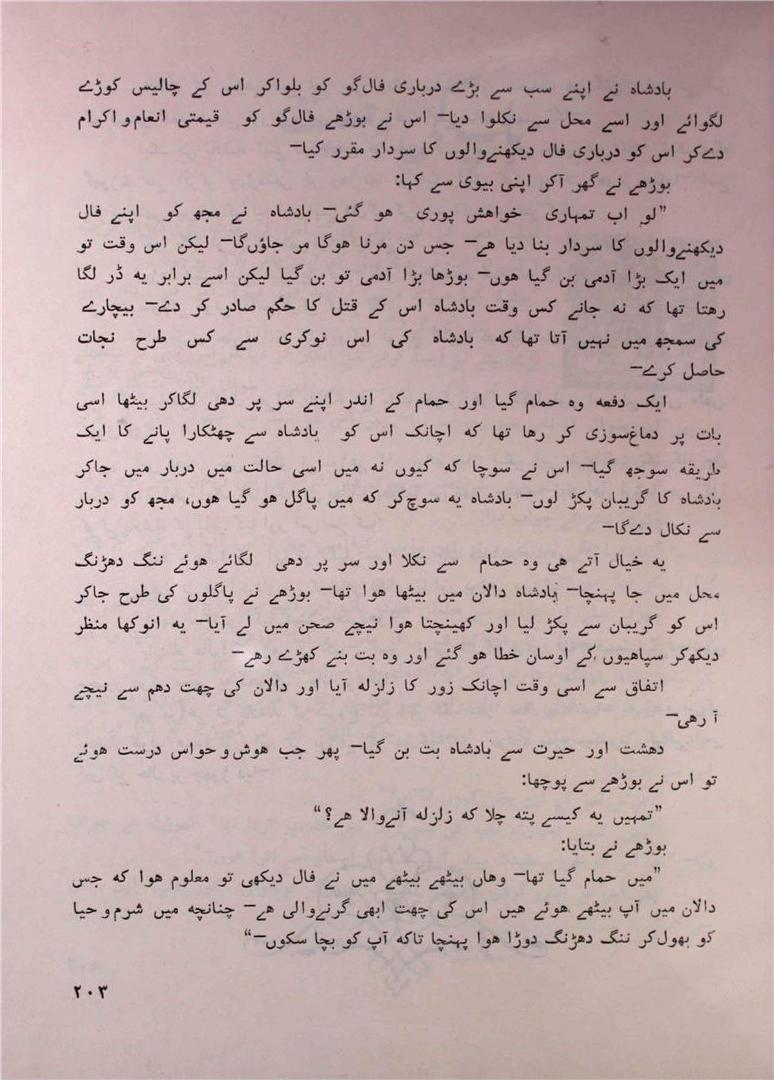 بادشاہ نے اپنے سب سے بڑے درباری فال‌گو کو بلواکر اس کے چالیس کوڑے
لگوائے اور اسے محل سے نکلوا دیا— اس نے بوڑھے فال‌گو کو قیمتی انعام و اکرام
دے‌کر اس کو درباری فال دیکھنے‌والوں کا سردار مقرر کیا—
بوڑھے نے گھر آکر اپنی بیوی سے کہا:
”لو اب تمہاری خواہش پوری ہو گئی— بادشاہ نے مجھ کو اپنے فال
دیکھنے‌والوں کا سردار بنا دیا ہے— جس دن مرنا ہوگا مر جاؤں‌گا— لیکن اس وقت تو
میں ایک بڑا آدمی بن گیا ہوں— بوڑھا بڑا آدمی تو بن گیا لیکن اسے برابر یہ ڈر لگا
رہتا تھا کہ نہ جانے کس وقت بادشاہ اس کے قتل کا حکم صادر کر دے— بیچارے
کی سمجھ میں نہیں آتا تھا کہ بادشاہ کی اس نوکری سے کس طرح نجات
حاصل کرے—
ایک دفعہ وہ حمام گیا اور حمام کے اندر اپنے سر پر دھی لگاکر بیٹھا اسی
بات پر دماغ‌سوزی کر رہا تھا کہ اچانک اس کو بادشاہ سے چھٹکارا پانے کا ایک
طریقہ سوجھ گیا— اس نے سوچا کہ کیوں نہ میں اسی حالت میں دربار میں جاکر
بادشاہ کا گریبان پکڑ لوں— بادشاہ یہ سوچ‌کر کہ میں پاگل ہو گیا ہوں، مجھ کو دربار
سے نکال دے‌گا—
یہ خیال آتے ہی وہ حمام سے نکلا اور سر پر دھی لگائے ہوئے ننگ دھڑنگ
محل میں جا پہنچا— بادشاہ دالان میں بیٹھا ہوا تھا— بوڑھے نے پاگلوں کی طرح جاکر
اس کو گریبان سے پکڑ لیا اور کھینچتا ہوا نیچے صحن میں لے آیا— یہ انوکھا منظر
دیکھ‌کر سپاہیوں کے اوسان خطا ہو گئے اور وہ بت بنے کھڑے رہے—
اتفاق سے اسی وقت اچانک زور کا زلزلہ آیا اور دالان کی چھت دھم سے نیچے
آ رہی—
دہشت اور حیرت سے بادشاہ بت بن گیا— پھر جب ہوش و حواس درست ہوئے
تو اس نے بوڑھے سے پوچھا:
”تمہیں یہ کیسے پتہ چلا کہ زلزلہ آنے‌والا ہے؟“
بوڑھے نے بتایا:
”میں حمام گیا تھا— وہاں بیٹھے بیٹھے میں نے فال دیکھی تو معلوم ہوا کہ جس
دالان میں آپ بیٹھے ہوئے ہیں اس کی چھت ابھی گرنے‌والی ہے— چنانچہ میں شرم و حیا
کو بھول‌کر ننگ دھڑنگ دوڑا ہوا پہنچا تاکہ آپ کو بچا سکوں—“
۲۰۳